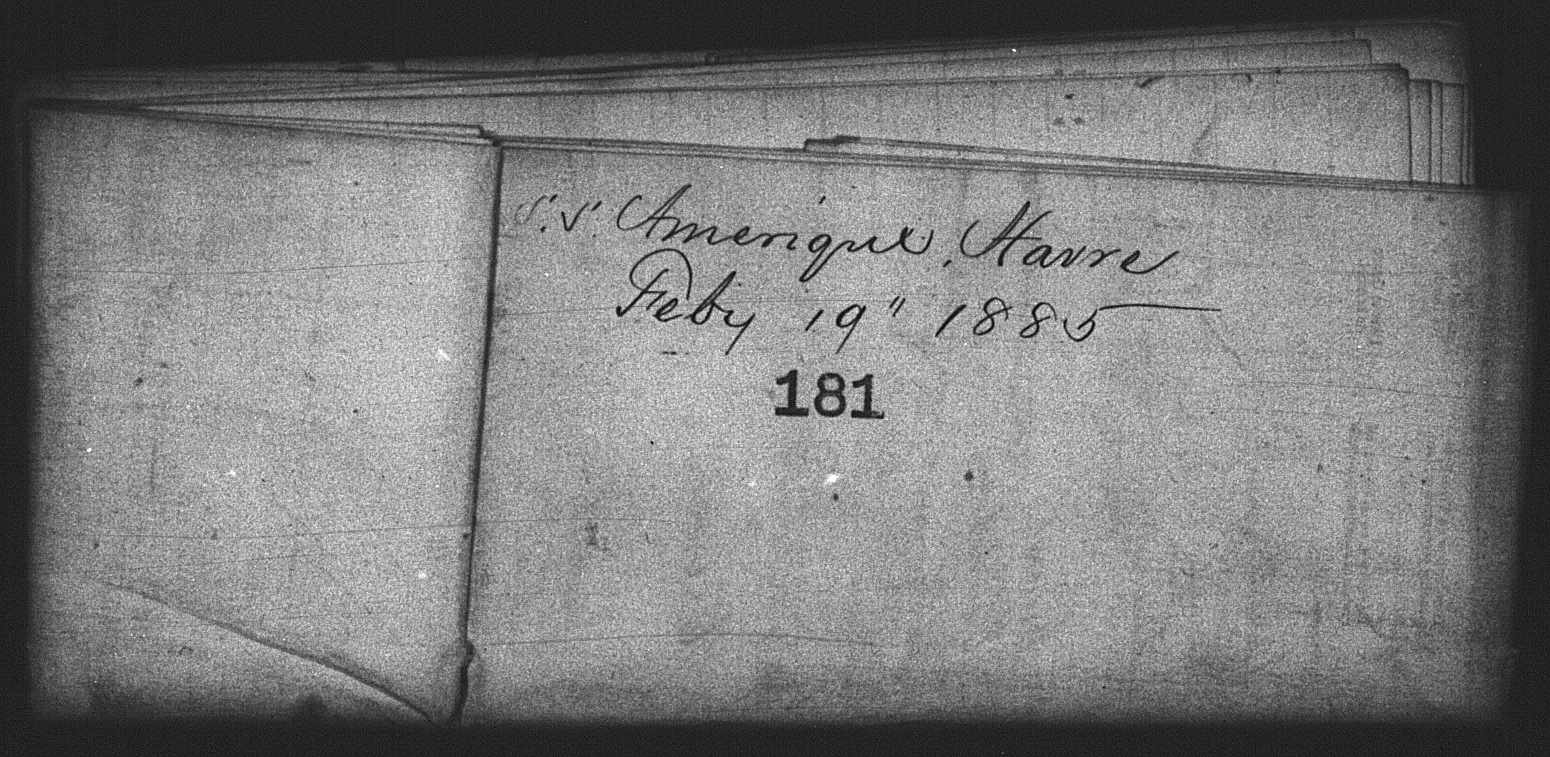 S.S. Amerique, Havre
Feby 19" 1885
181